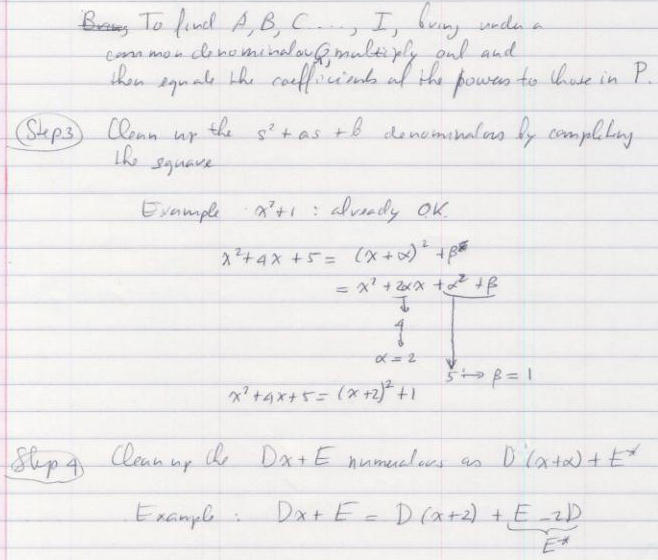 To find A, B, C ..., I, bring under a
common denominator Q, multiply out and
then equate the coefficients of the powers to those in P.
Step 3 Clean up the s² + as + b denominators by completing
the square
Example x²+1 : already OK.
x²+4x+5 = (x+α)² + β
= x² + 2αx + α² + β
4
α = 2
5 → β = 1
x²+4x+5 = (x+2)² + 1
Step 4 Clean up the Dx+E numerators as D (x+α) + E*
Example : Dx + E = D (x+2) + E - 2D
E*